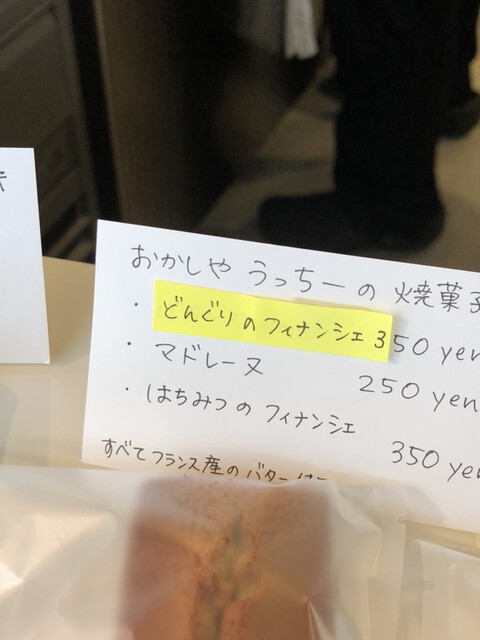 おかしや うっちーの 焼菓子
・どんぐりのフィナンシェ 350 yen
・マドレーヌ 250 yen
・はちみつのフィナンシェ 350 yen
すべてフランス産のバター